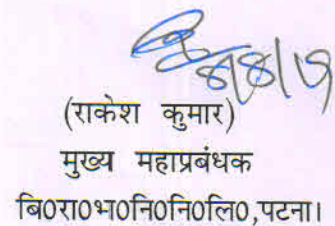 8/8/19
(राकेश कुमार)
मुख्य महाप्रबंधक
बि0रा0भ0नि0नि0लि0,पटना।